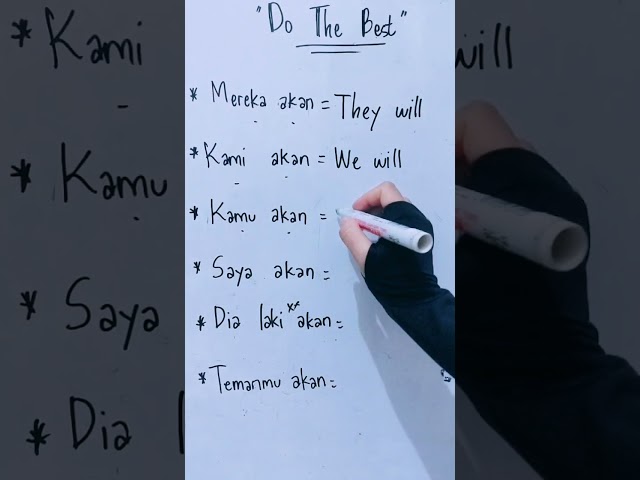 "Do The Best"
* Mereka akan = They will
* Kami akan = We will
* Kamu akan =
* Saya akan =
* Dia laki ** akan =
* Temanmu akan =